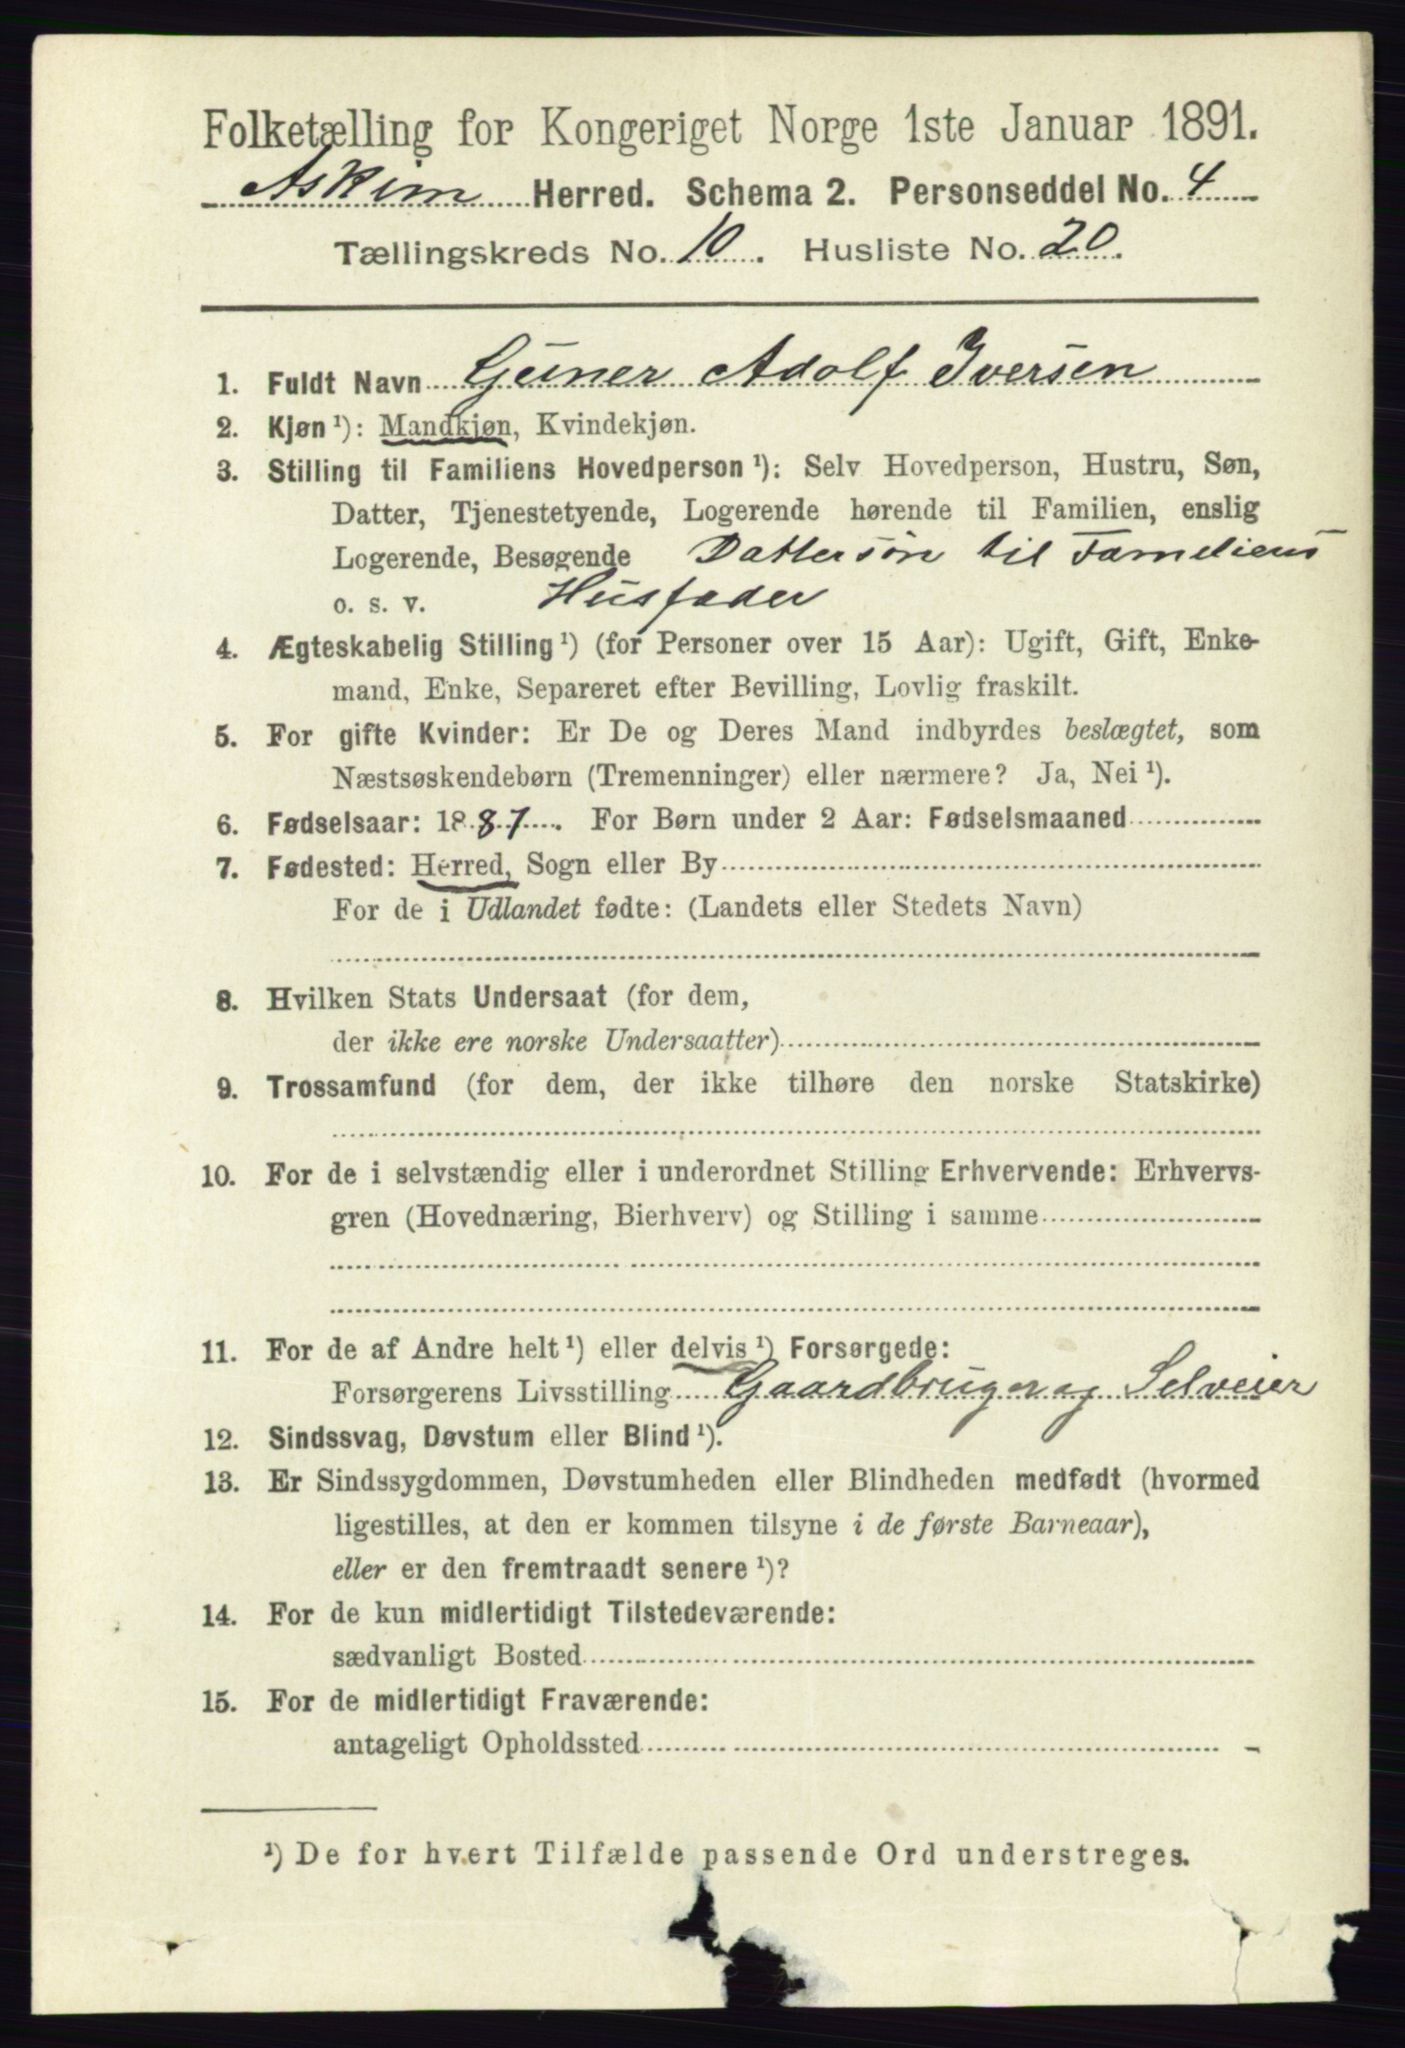 Folketælling for Kongeriget Norge 1ste Januar 1891.
Askim Herred. Schema 2. Personseddel No. 4
Tællingskreds No. 10. Husliste No. 20.
1. Fuldt Navn Guner Adolf Iversen
2. Kjøn¹): Mandkjøn, Kvindekjøn.
3. Stilling til Familiens Hovedperson¹): Selv Hovedperson, Hustru, Søn,
Datter, Tjenestetyende, Logerende hørende til Familien, enslig
Logerende, Besøgende Dattersøn til Familiens
o. s. v. Husfader
4. Ægteskabelig Stilling¹) (for Personer over 15 Aar): Ugift, Gift, Enke-
mand, Enke, Separeret efter Bevilling, Lovlig fraskilt.
5. For gifte Kvinder: Er De og Deres Mand indbyrdes beslægtet, som
Næstsøskendebørn (Tremenninger) eller nærmere? Ja, Nei¹).
6. Fødselsaar: 1887. For Børn under 2 Aar: Fødselsmaaned
7. Fødested: Herred, Sogn eller By
For de i Udlandet fødte: (Landets eller Stedets Navn)
8. Hvilken Stats Undersaat (for dem,
der ikke ere norske Undersaatter)
9. Trossamfund (for dem, der ikke tilhøre den norske Statskirke)
10. For de i selvstændig eller i underordnet Stilling Erhvervende: Erhvervs-
gren (Hovednæring, Bierhverv) og Stilling i samme
11. For de af Andre helt¹) eller delvis¹) Forsørgede:
Forsørgerens Livsstilling Gaardbruger og Selveier
12. Sindssvag, Døvstum eller Blind¹).
13. Er Sindssygdommen, Døvstumheden eller Blindheden medfødt (hvormed
ligestilles, at den er kommen tilsyne i de første Barneaar),
eller er den fremtraadt senere¹)?
14. For de kun midlertidigt Tilstedeværende:
sædvanligt Bosted
15. For de midlertidigt Fraværende:
antageligt Opholdssted
¹) De for hvert Tilfælde passende Ord understreges.